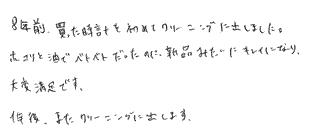 8年前、買った時計を初めてクリーニングに出しました。
ホコリと油でベトベトだったのに、新品みたいにキレイになり、
大変満足です。
何年後、またクリーニングに出します。